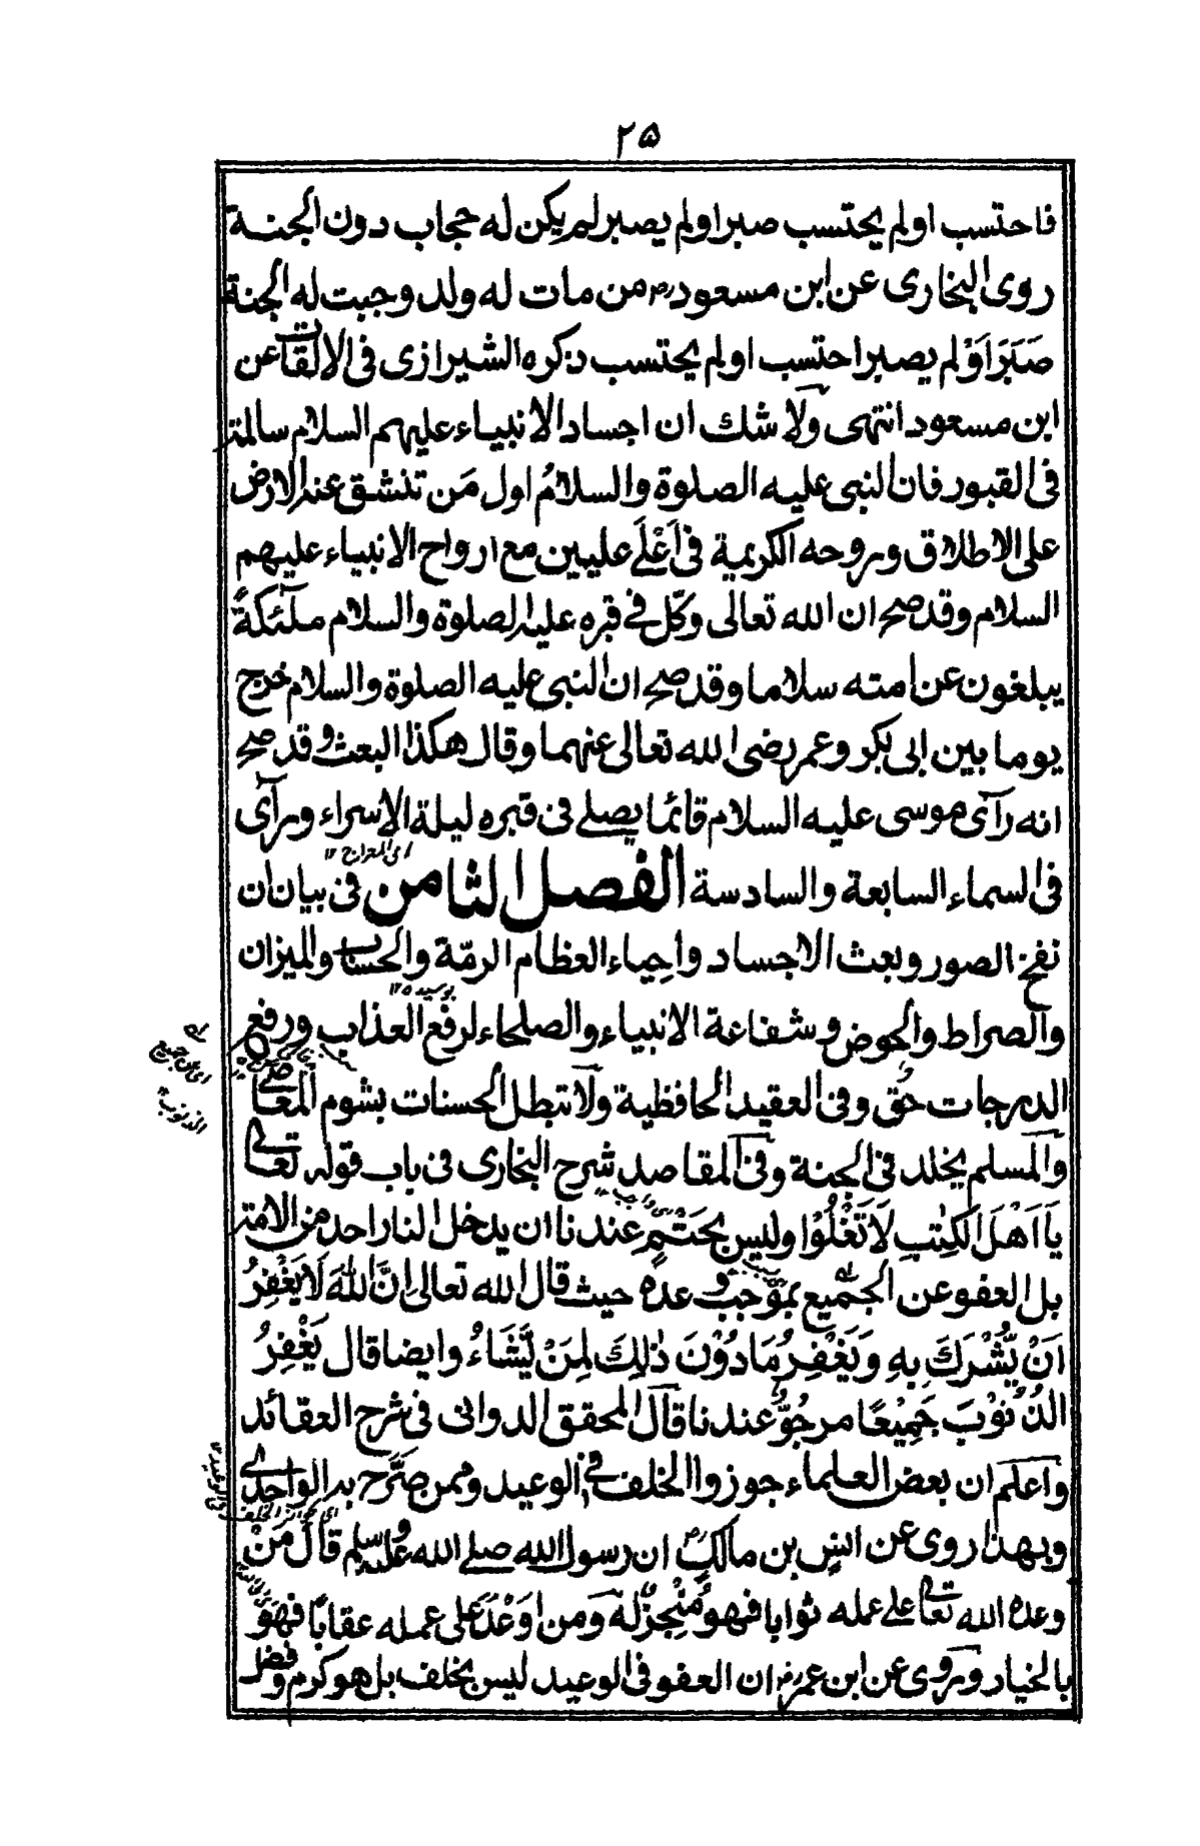 ٢٥
فاحتسب اولم يحتسب صبر اولم يصبر لم يكن له حجاب دون الجنة
روى البخارى عن ابن مسعود رض من مات له ولد وجبت له الجنة
صَبَرَ اَوْلم يصبر احتسب اولم يحتسب ذكره الشيرازى فى الالقاب عن
ابن مسعود انتهى ولا شك ان اجساد الانبياء عليهم السلام سالمة
فى القبور فان النبى عليه الصلوة والسلامُ اول مَن تنشق عنه الارض
على الاطلاق وروحه الكريمة فى اَعْلَے عليين مع ارواح الانبياء عليهم
السلام وقد صح ان الله تعالى وكّل فے قبره عليه الصلوة والسلام ملٰئكةً
يبلغون عن امته سلاما وقد صح ان النبى عليه الصلوة والسلام خرج
يوما بين ابى بكر وعمر رضى الله تعالى عنهما وقال هكذا البعث وقد صح
انه رآى موسى عليه السلام قائما يصلے فى قبره ليلة الاسراء ورآى
اى المعراج ١٢
فى السماء السابعة والسادسة الفصل الثامن فى بيان ان
نفخ الصور وبعث الاجساد واحياء العظام الرمّة والحساب والميزان
بوسيده ١٢
والصراط والحوض وشفاعة الانبياء والصلحاء لرفع العذاب ورفع
الدرجات حُق وفى العقيد الحافظية ولا تبطل الحسنات بشوم المعاصے
والمسلم يخلد فى الجنة وفى المقاصد شرح البخارى فى باب قوله تعالى
يَا اَهْلَ الْكِتٰبِ لَا تَغْلُوْا وليس بحَتْمٍ عندنا ان يدخل النار احد من الامة
بل العفو عن الجميع بموجب وعده حيث قال الله تعالى اِنَّ اللهَ لَا يَغْفِرُ
اَنْ يُّشْرَكَ بِهٖ وَيَغْفِرُ مَادُوْنَ ذٰلِكَ لِمَنْ يَّشَاءُ وايضا قال يَغْفِرُ
الذُّنُوْبَ جَمِيْعًا مرجُوٌّ عندنا قال المحقق الدوانى فى شرح العقائد
واعلم ان بعض العلماء جوزوا الخلف فے الوعيد وممن صَرَّح به الواحدى
وبهذا روى عن انس بن مالك رض ان رسول الله صلے الله عليه وسلم قال مَنْ
وعده الله تعالى علے عمله ثوابا فهو مُنْجِزٌ له ومن اَوْعَدَ على عمله عقابًا فهو
بالخيار وروى عن ابن عمر رض ان العفو فى الوعيد ليس بخلف بل هو كرم وفضل
اى عن جميع
الذنوب ١٢